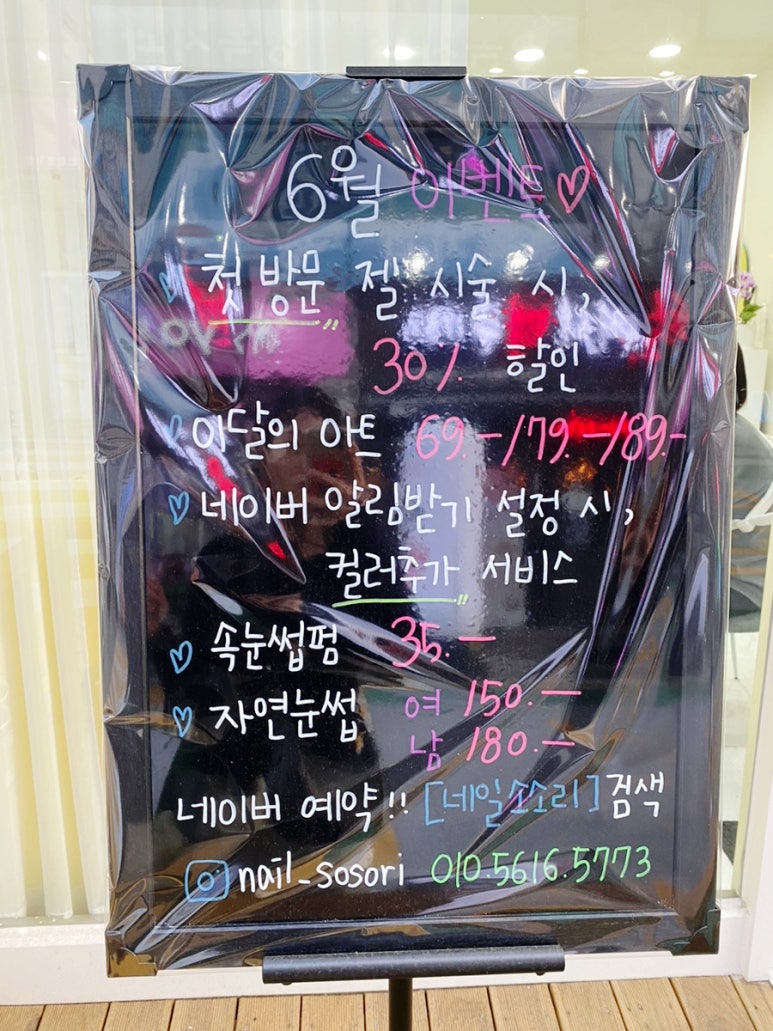 6월 이벤트♡
♡ 첫 방문 젤 시술 시,
30% 할인
♡ 이달의 아트 69.-/79.-/89.-
♡ 네이버 알림받기 설정 시,
컬러추가 서비스
♡ 속눈썹펌 35.-
♡ 자연눈썹 여 150.-
남 180.-
네이버 예약!! [네일소소리] 검색
nail_sosori 010.5616.5773